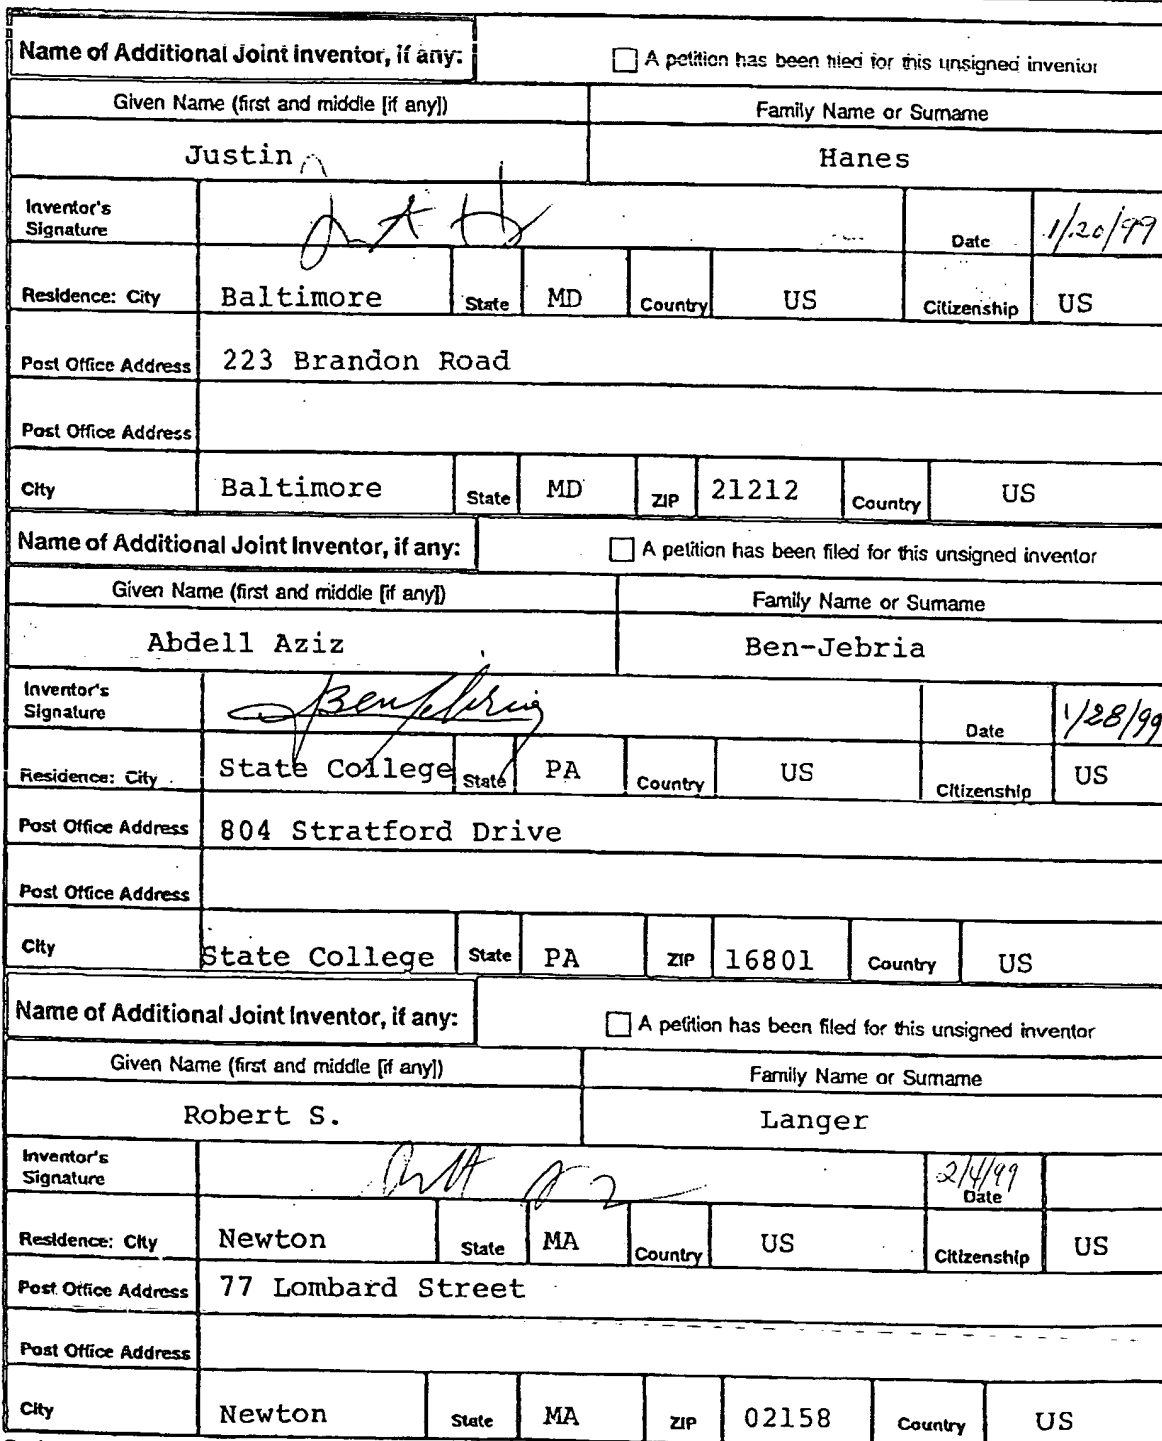 Name of Additional Joint Inventor, if any: A petition has been filed for this unsigned inventor
Given Name (first and middle [if any]) Family Name or Surname
Justin Hanes
Inventor's Signature Date 1/20/99
Residence: City Baltimore State MD Country US Citizenship US
Post Office Address 223 Brandon Road
Post Office Address
City Baltimore State MD ZIP 21212 Country US
Name of Additional Joint Inventor, if any: A petition has been filed for this unsigned inventor
Given Name (first and middle [if any]) Family Name or Surname
Abdell Aziz Ben-Jebria
Inventor's Signature BenJebria Date 1/28/99
Residence: City State College State PA Country US Citizenship US
Post Office Address 804 Stratford Drive
Post Office Address
City State College State PA ZIP 16801 Country US
Name of Additional Joint Inventor, if any: A petition has been filed for this unsigned inventor
Given Name (first and middle [if any]) Family Name or Surname
Robert S. Langer
Inventor's Signature 2/4/99 Date
Residence: City Newton State MA Country US Citizenship US
Post Office Address 77 Lombard Street
Post Office Address
City Newton State MA ZIP 02158 Country US